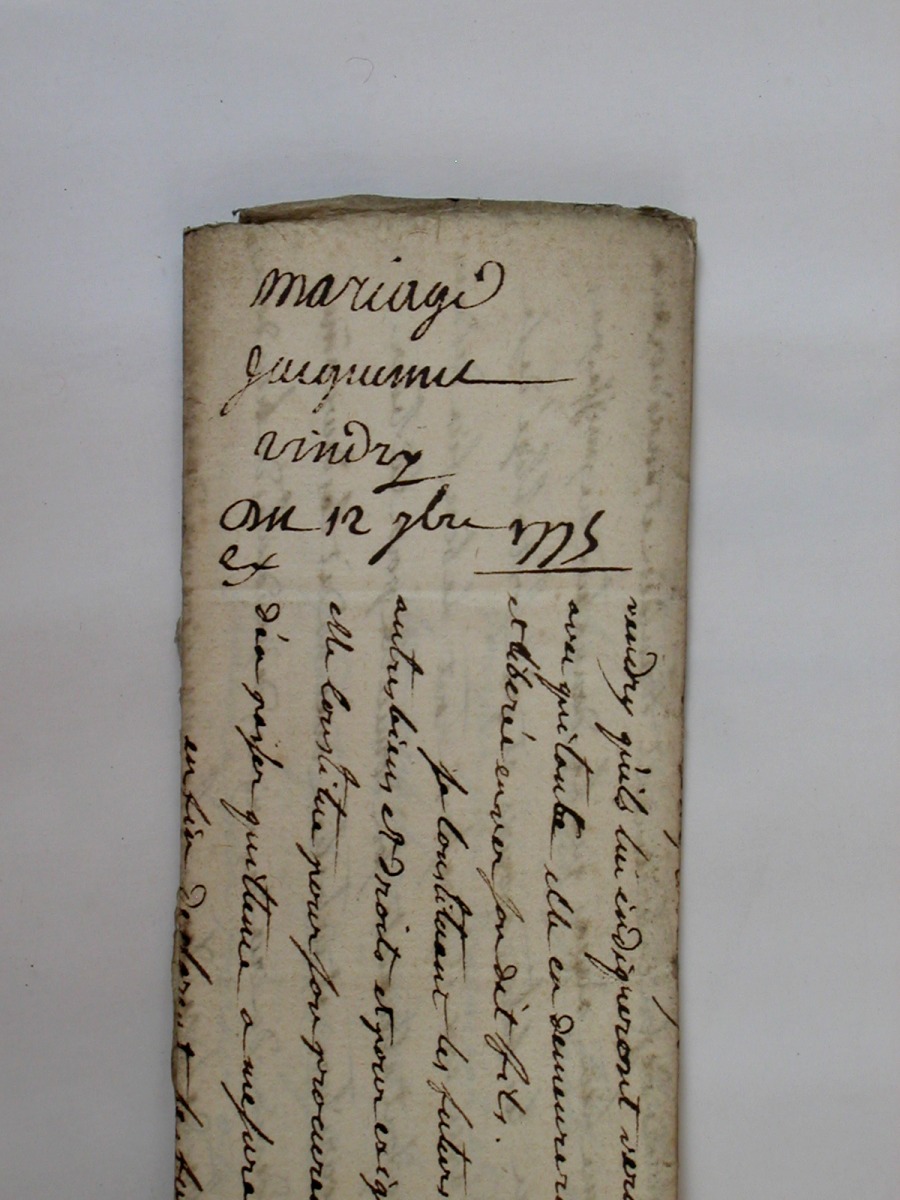 mariage
Jacquemet
vindry
Du 12 7bre 1775
Ex
vendry quils lui indiqueront
avec qui toute elle en demeurera
et libérée envers son dit fils.
se constituant les futurs
autres biens et droits et pour exig
elle constitue pour son procura
Déa passer quittance a mesure
entier declarent